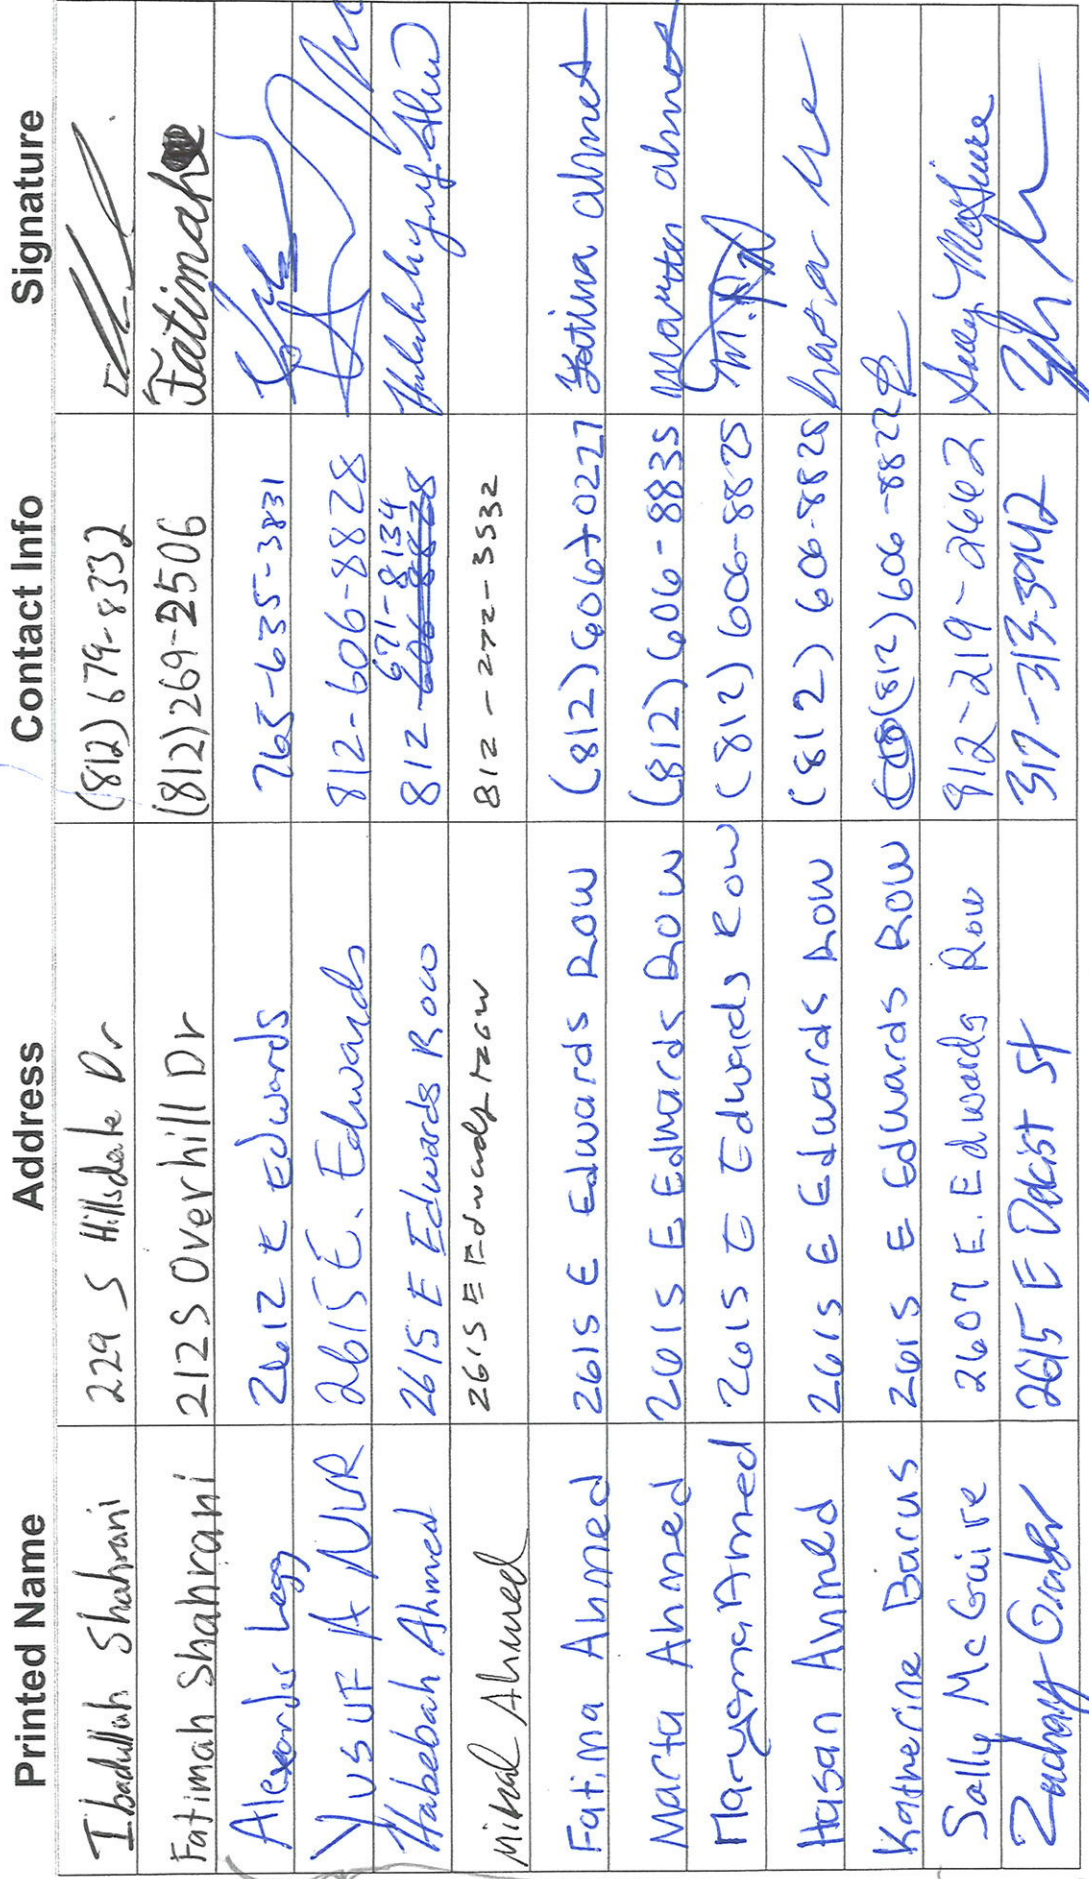 Printed Name Address Contact Info Signature
Ibadullah Shahrani 229 S Hillsdale Dr (812) 679-8332
Fatimah Shahrani 212 S Overhill Dr (812) 269-2506 Fatimah
Alexander Legg 2612 E Edwards 765-635-3831
YUSUF A NUR 2615 E. Edwards 812-606-8828
Habebah Ahmed 2615 E Edwards Row 812 606-8828 671-8134
Mikal Ahmed 2615 E Edwards Row 812-272-3532
Fatima Ahmed 2615 E Edwards Row (812) 606-0227 Fatima ahmed
Marta Ahmed 2615 E Edwards Row (812) 606-8835 Marta ahmed
Maryama Ahmed 2615 E Edwards Row (812) 606-8825
Hasan Ahmed 2615 E Edwards Row (812) 606-8828
Katherine Barus 2615 E Edwards Row (812) 606-8822
Sally McGuire 2607 E. Edwards Row 812-219-2662 Sally McGuire
Zachary Graber 2615 E St 317-313-3942